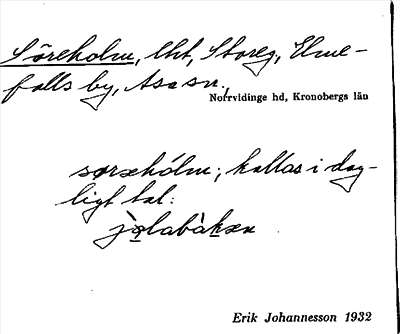 Söreholm, lht, Storeg, Elme-
falls by, Asa sn.,
Norrvidinge hd, Kronobergs län
sørxhólm; kallas i dag-
ligt tal:
jø̀labàkxn
Erik Johannesson 1932